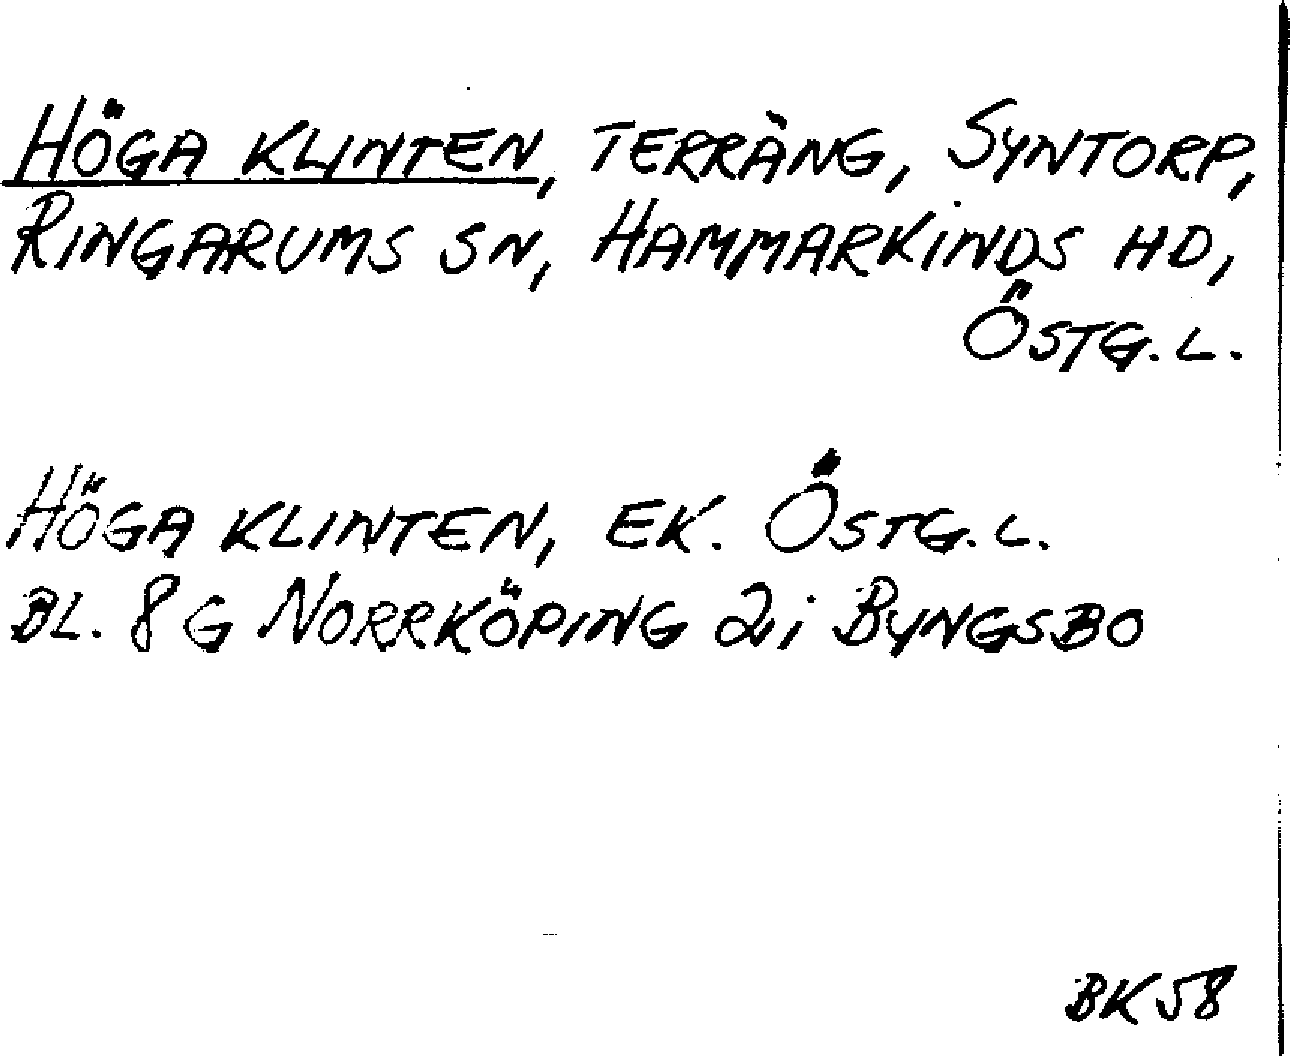 HÖGA KLINTEN, TERRÄNG, SYNTORP,
RINGARUMS SN, HAMMARKINDS HD,
ÖSTG. L.
HÖGA KLINTEN, EK. ÖSTG. L.
BL. 8 G NORRKÖPING 2i BYNGSBO
BK 58